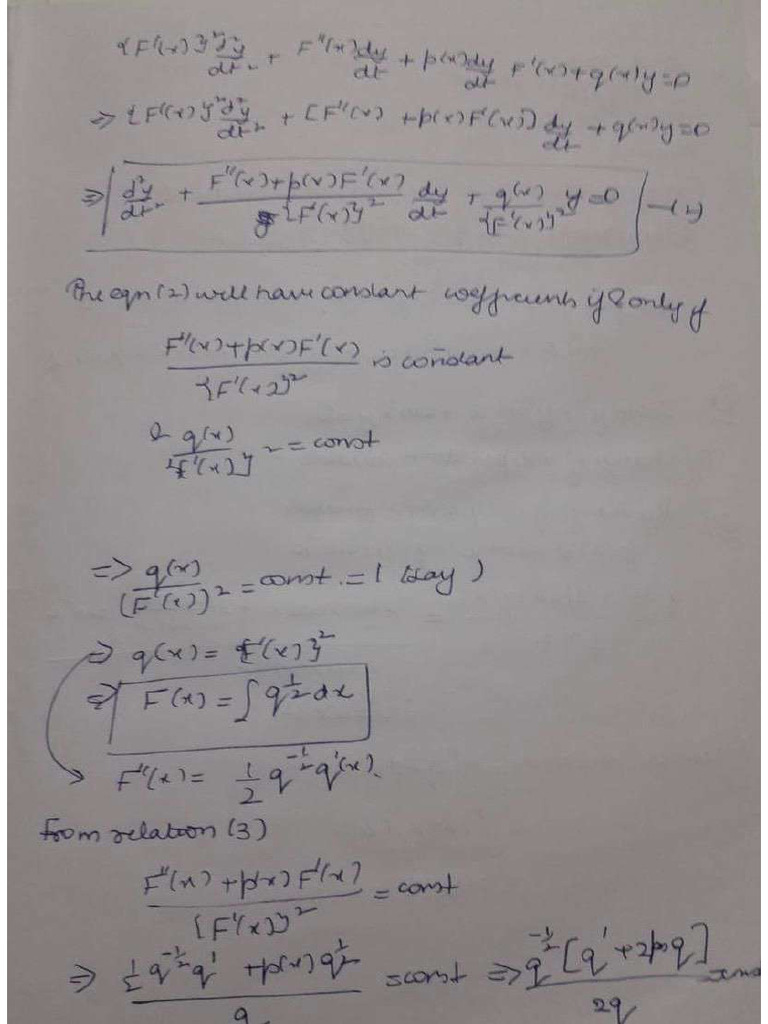 {F'(x)}² d²y/dt² + F''(x) dy/dt + p(x) dy/dt F'(x) + q(x)y = 0
⇒ {F'(x)}² d²y/dt² + [F''(x) + p(x)F'(x)] dy/dt + q(x)y = 0
⇒ d²y/dt² + (F''(x) + p(x)F'(x))/{F'(x)}² dy/dt + q(x)/{F'(x)}² y = 0 —(2)
The eqn (2) will have constant coefficients if & only if
(F''(x) + p(x)F'(x))/{F'(x)}² is constant
& q(x)/{F'(x)}² = const
⇒ q(x)/(F'(x))² = const. = 1 (say)
⇒ q(x) = {F'(x)}²
⇒ F(x) = ∫ q^(1/2) dx
F''(x) = 1/2 q^(-1/2) q'(x).
from relation (3)
(F''(x) + p(x)F'(x))/{F'(x)}² = const
⇒ (1/2 q^(-1/2) q' + p(x) q^(1/2))/q = const ⇒ q^(-1/2) [q' + 2pq]/2q